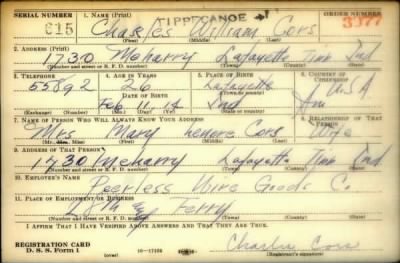 TIPPECANOE
SERIAL NUMBER 1. NAME (Print) ORDER NUMBER
615 Charles William Cors
(First) (Middle) (Last)
2. ADDRESS (Print)
1730 Meharry Lafayette Tipp Ind
(Number and street or R. F. D. number) (Town) (County) (State)
3. TELEPHONE 4. AGE IN YEARS 5. PLACE OF BIRTH 6. COUNTRY OF CITIZENSHIP
55892 26 Lafayette U S A
DATE OF BIRTH
Feb 11 14 Ind
(Exchange) (Number) (Mo.) (Day) (Yr.) (State or country)
7. NAME OF PERSON WHO WILL ALWAYS KNOW YOUR ADDRESS 8. RELATIONSHIP OF THAT PERSON
Mrs Mary Lenore Cors Wife
(Mr., Mrs., Miss) (First) (Middle) (Last)
9. ADDRESS OF THAT PERSON
1730 Meharry Lafayette Tipp Ind
(Number and street or R. F. D. number) (Town) (County) (State)
10. EMPLOYER'S NAME
Peerless Wire Goods Co.
11. PLACE OF EMPLOYMENT OR BUSINESS
18th Ferry
(Number and street or R. F. D. number) (Town) (County) (State)
I AFFIRM THAT I HAVE VERIFIED ABOVE ANSWERS AND THAT THEY ARE TRUE.
REGISTRATION CARD
D. S. S. Form 1 Charles Cors
(Registrant's signature)